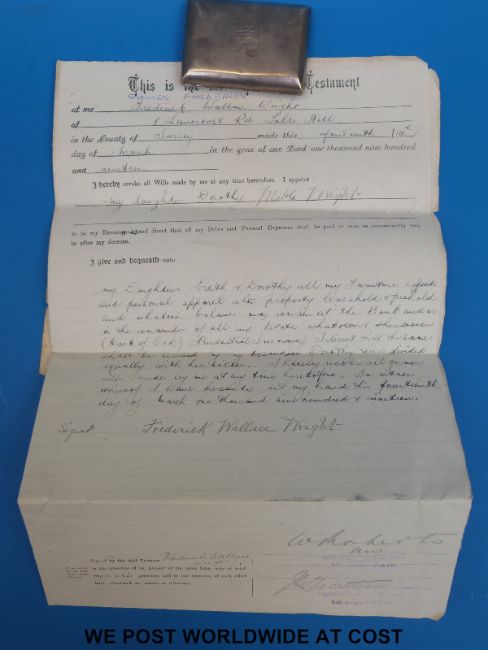 This is the Testament
JAMES FREDERICK
of me Frederick Wallace Wright
of 8 Lancercost Rd Tulse Hill
in the County of Surrey made this fourteenth (14th)
day of March in the year of our Lord one thousand nine hundred
and nineteen
I hereby revoke all Wills made by me at any time heretofore. I appoint
my daughter Dorothy Wright
to be my Execut and direct that all my Debts and Funeral Expenses shall be paid as soon as conveniently may
be after my decease.
I give and bequeath unto
my Daughters Edith & Dorothy all my Furniture effects
and personal apparel also property leasehold & freehold
and whatever balance may remain at the Bank
the remainder of all my Estate whatsoever & wheresoever
Prudential Insurance
shall be
equally with her sister. I hereby revoke all
wills made by me at any time heretofore. In witness
whereof I have hereunto set my hand this fourteenth
day of March one thousand nine hundred & nineteen.
Signed Frederick Wallace Wright
Signed by the said Testator Frederick Wallace
Wright
in the presence of us, present at the same time, who at his
request, in his presence, and in the presence of each other
have subscribed our names as witnesses
WE POST WORLDWIDE AT COST